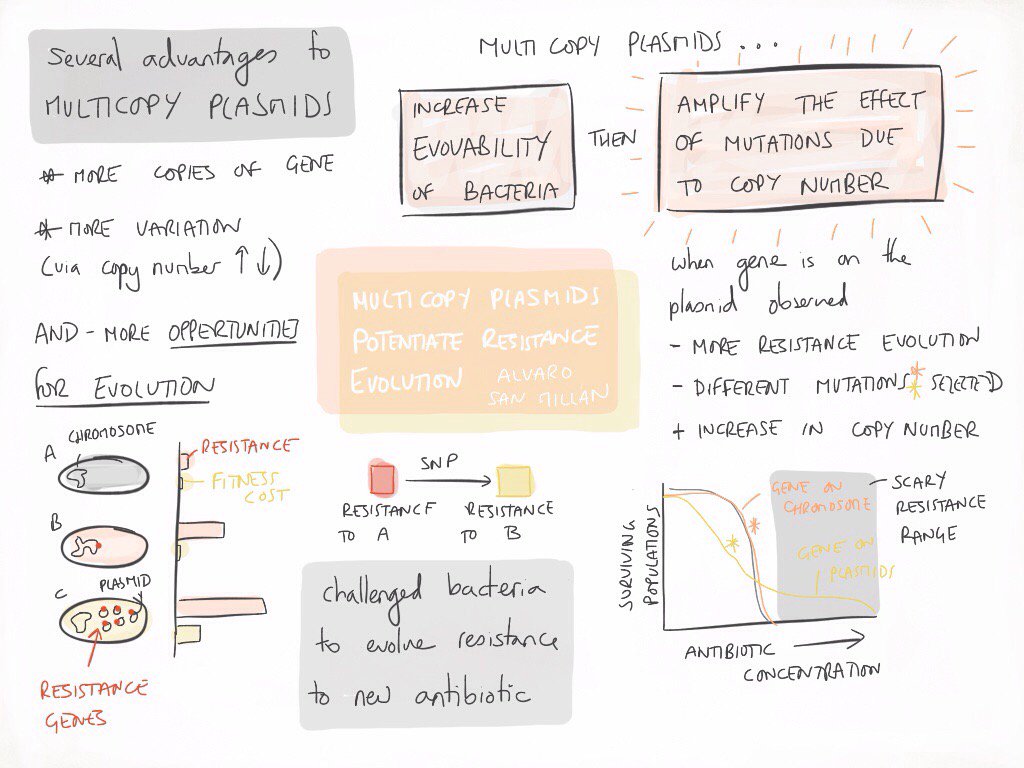 Several advantages to
MULTICOPY PLASMIDS
* MORE COPIES OF GENE
* MORE VARIATION
(via copy number ↑↓)
AND - MORE OPPERTUNITIES
FOR EVOLUTION
A
CHROMOSOME
RESISTANCE
FITNESS
COST
B
C
PLASMID
RESISTANCE
GENES
MULTI COPY PLASMIDS ...
INCREASE
EVOVABILITY
OF BACTERIA
THEN
AMPLIFY THE EFFECT
OF MUTATIONS DUE
TO COPY NUMBER
MULTICOPY PLASMIDS
POTENTIATE RESISTANCE
EVOLUTION ALVARO
SAN MILLAN
SNP
RESISTANCE
TO A
RESISTANCE
TO B
challenged bacteria
to evolve resistance
to new antibiotic
when gene is on the
plasmid observed
- MORE RESISTANCE EVOLUTION
- DIFFERENT MUTATIONS ** SELECTED
+ INCREASE IN COPY NUMBER
SURVIVING
POPULATIONS
GENE ON
CHROMOSOME
*
*
GENE ON
PLASMIDS
SCARY
RESISTANCE
RANGE
ANTIBIOTIC
CONCENTRATION